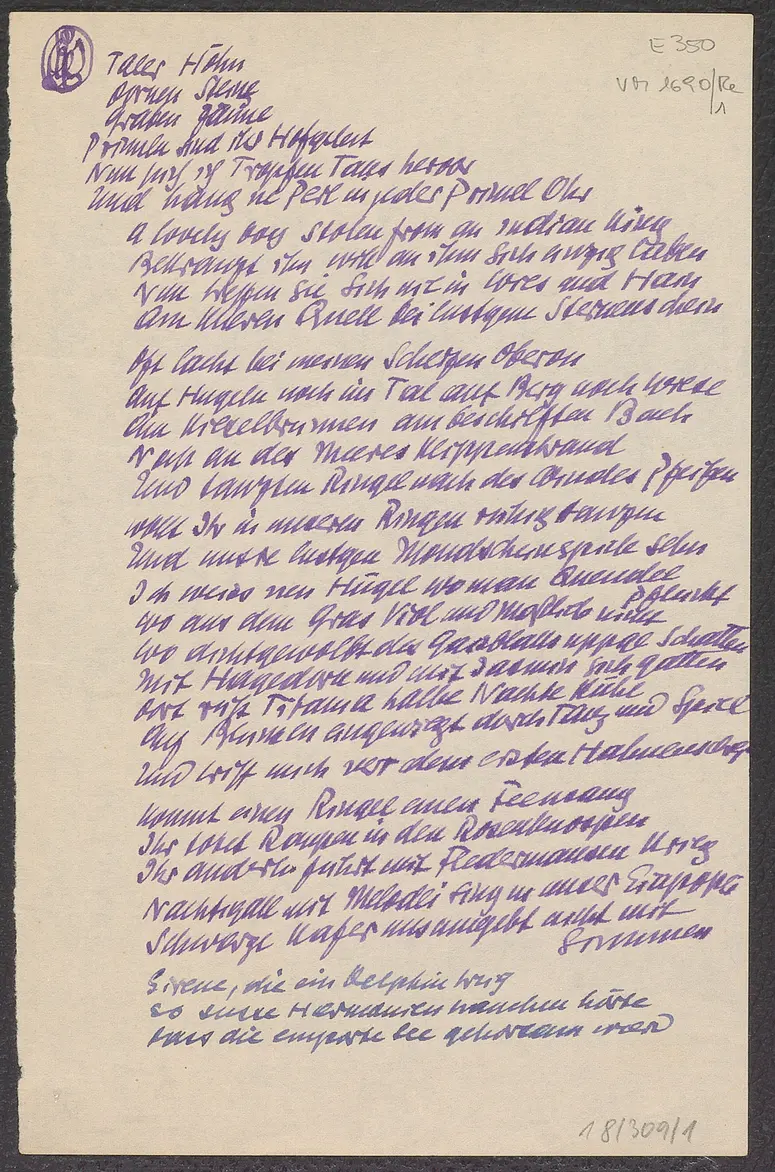 E 350
VM 1690/Re
1
Täler Höhn
Dornen Steine
Graben Zäune
Primeln sind ihr Hofgeleit
Nun such ich Tropfen Taus hervor
Und häng ne Perl in jeder Primel Ohr
A lovely boy stolen from an indian King
Bekränzt ihn will an ihm sich einzig laben
Nun treffen sie sich nie in Wies und Hain
Am klaren Quell bei lustgem Sternenschein
Oft lacht bei meinen Scherzen Oberon
Auf Hügeln noch im Tal auf Berg noch Wiese
Am Kieselbrunnen am beschilften Bach
Noch an des Meeres Klippenwand
Und tanzten Ringel nach des Windes Pfeifen
Wollt Ihr in unseren Ringen ruhig tanzen
Und unsre lustgen Mondscheinspiele sehn
Ich weiss nen Hügel wo man Quendel
pflückt
wo aus dem Gras Viol und Masslieb nickt
wo dichtgewölbt des Gaisblatts üppge Schatten
Mit Hagedorn und mit Jasmin sich gatten
Dort ruht Titania halbe Nächte kühl
Auf Blumen eingewiegt durch Tanz und Spiel
Und triff mich vor dem ersten Hahnenschrei
Kommt einen Ringel einen Feensang
Ihr tötet Raupen in den Rosenknospen
Ihr andern führt mit Fledermäusen Krieg
Nachtigall mit Melodei sing in unser Eiapopei
Schwarze Käfer uns umgebt nicht mit
Summen
Sirene, die ein Delphin trug
So süsse Harmonien hauchen hörte
Dass die empörte See gehorsam ward
18/309/1